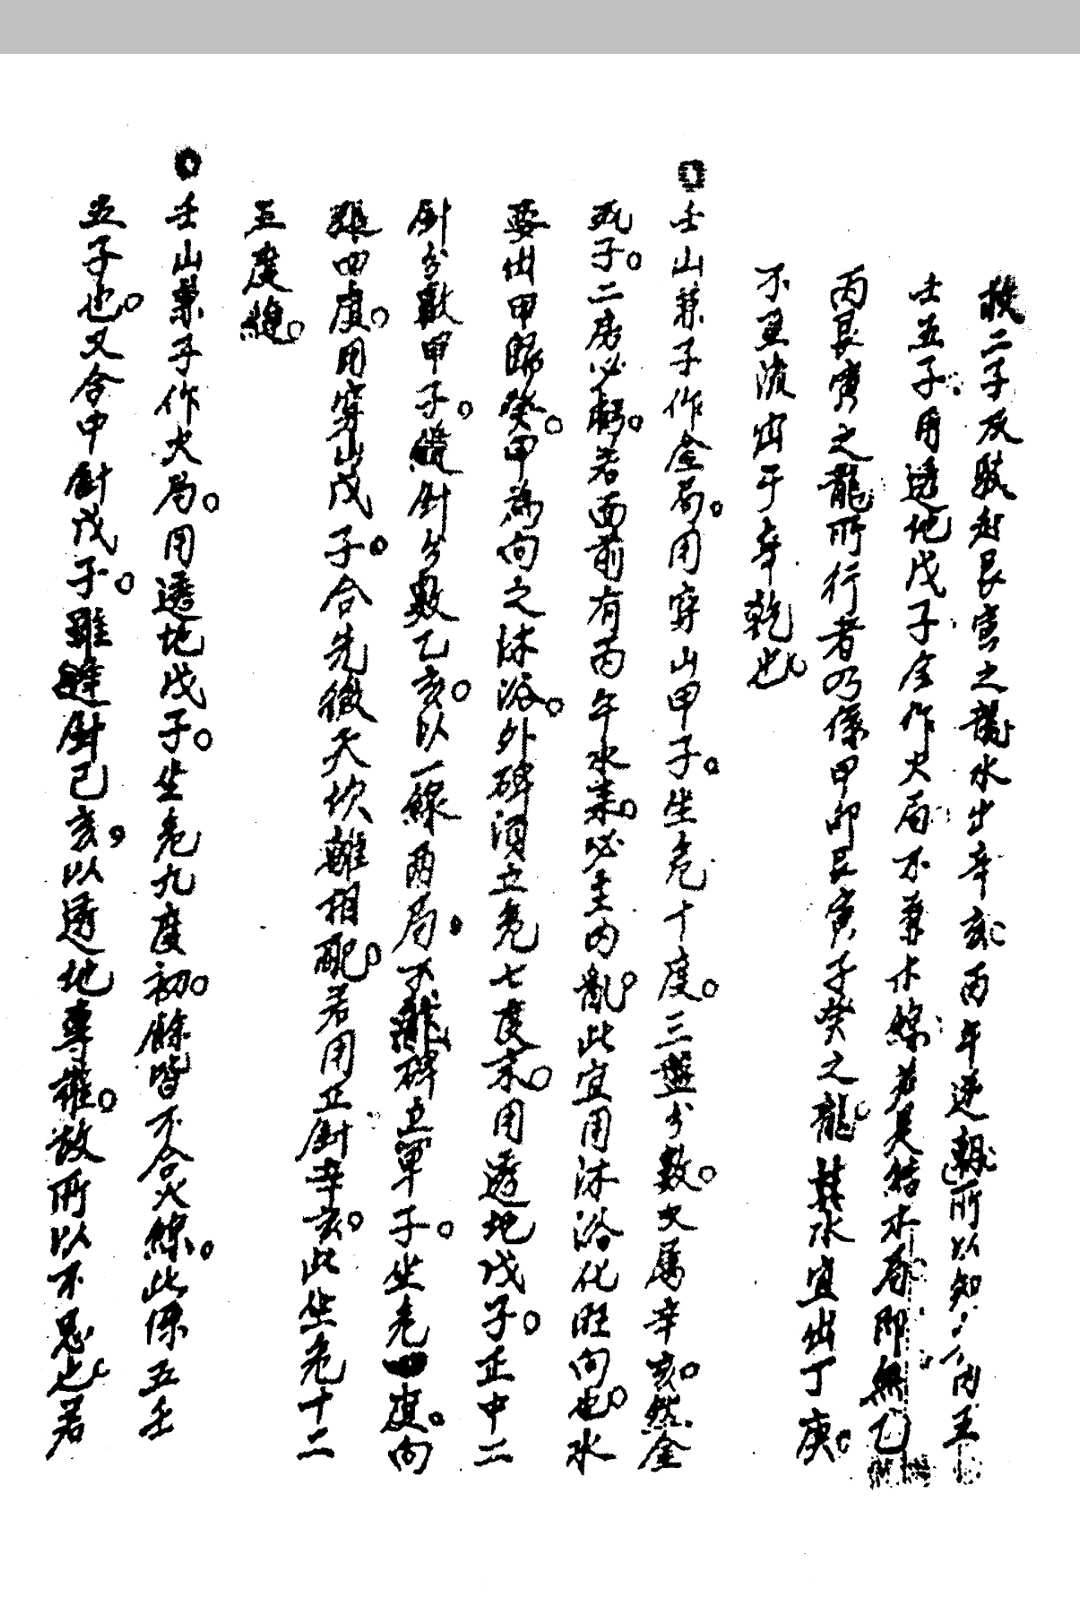 挨二子及驗起艮寅之龍水出辛亥丙年逆朝所以知丙王
壬五子用透地戊子合作火局不兼水線若是結水局即無乙
丙艮寅之龍所行者乃係甲卯艮寅子癸之龍其水宜出丁庚。
不宜流出于辛乾也
壬山兼子作金局。用穿山甲子。坐危十度。三盤分數。又屬辛亥。然金
死子。二房必弱。若面前有丙午水來。必主內亂。此宜用沐浴化旺向也。水
要出甲歸癸。甲為向之沐浴。外碑須立危七度末。用透地戊子。正中二
針分數甲子。縫針分數乙亥。以一線兩局。不離碑立單子。坐危四度。向
張四度。用穿山戊子。合先後天坎離相配。若用正針辛亥。此坐危十二
五度線。
壬山兼子作火局。用透地戊子。坐危九度初。餘皆不合火線。此係五壬
五子也。又合中針戊子。雖縫針己亥。以透地專權。故所以不忌也若